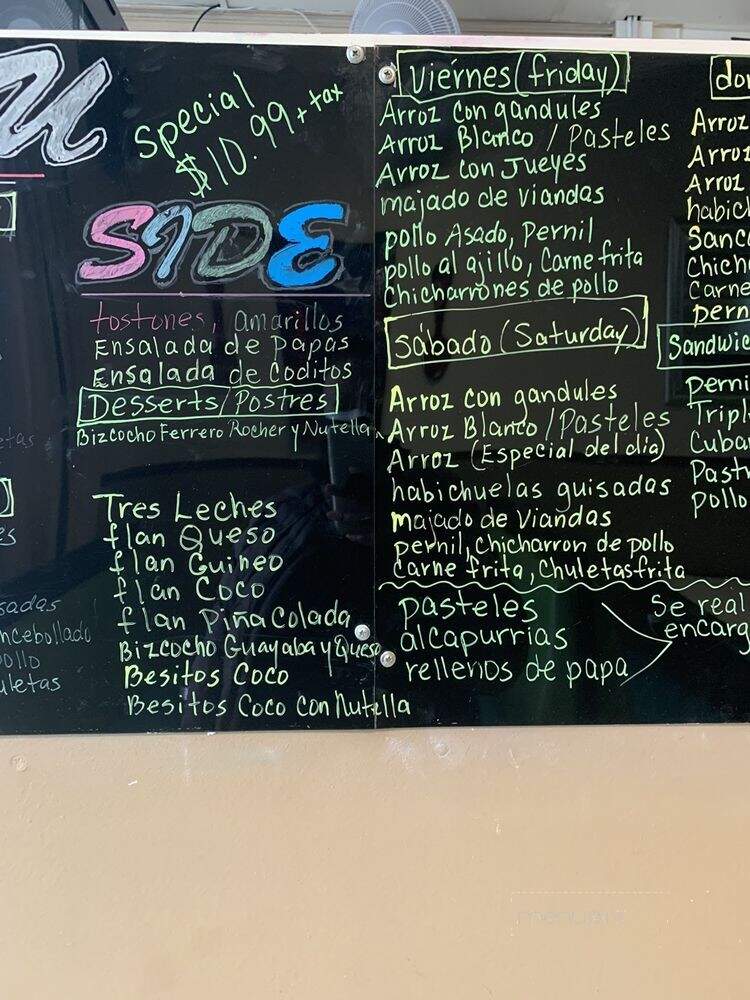 Special
$10.99 + tax
SIDE
tostones, amarillos
Ensalada de papas
Ensalada de Coditos
Desserts/Postres
Bizcocho Ferrero Rocher y Nutella
Tres Leches
flan Queso
flan Guineo
flan Coco
flan Piña Colada
Bizcocho Guayaba y Queso
Besitos Coco
Besitos Coco con Nutella
Viernes (friday)
Arroz con gandules
Arroz Blanco / Pasteles
Arroz con Jueyes
majado de viandas
pollo Asado, Pernil
pollo al ajillo, Carne frita
Chicharrones de pollo
Sábado (Saturday)
Arroz con gandules
Arroz Blanco / Pasteles
Arroz (Especial del día)
habichuelas guisadas
Majado de Viandas
pernil, Chicharron de pollo
Carne frita, Chuletas frita
pasteles
alcapurrias
rellenos de papa
Se real
encarg
dor
Arroz
Arroz
Arroz
habich
Sanco
Chich
Carne
pern
Sandwic
perni
Tripl
Cuba
Past
pollo